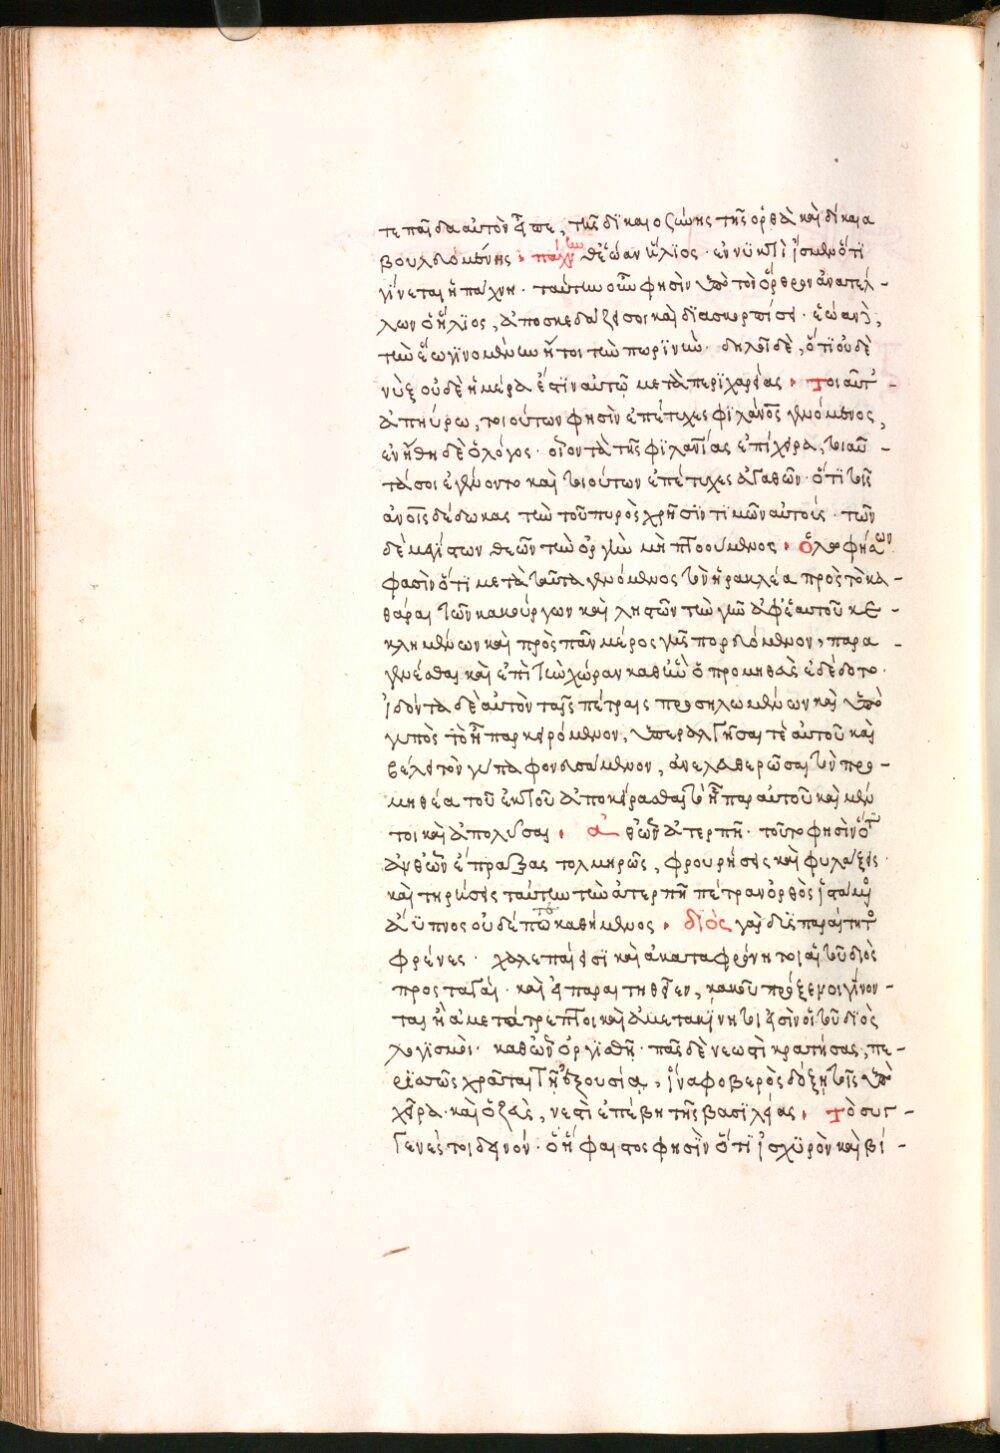 τε παῖδα αὐτὸν εἶπε, τῆς δικαιοζώης τῆς ὀρθὰ καὶ δίκαια
βουλευομένης · πάχνην θ' ἑῴαν ἥλιος · ἐν νυκτὶ ἴσμεν ὅτι
γίνεται ἡ πάχνη · ταύτην οὖν φησὶν ὑπὸ τὸν ὄρθρον ἀνατέλ-
λων ὁ ἥλιος, ἀποσκεδάζει σοι καὶ διασκορπίσει · ἑῴαν,
τὴν ἕω γινομένην ἤτοι τὴν πρωϊνὴν · δηλοῖ δὲ, ὅτι οὐδὲ
νὺξ οὐδὲ ἡμέρα ἐστὶν αὐτῷ μετὰ περιχαρείας · τοιαῦτ'
ἀπηύρω, τοιούτων φησὶν ἐπέτυχες φιλάνος γενόμενος,
ἐνήθη δὲ ὁ λόγος · οἷον τὰ τῆς φιλανίας ἐπίχειρα, τοιαῦ-
τά σοι ἐγένοντο καὶ τοιούτων ἐπέτυχες ἀγαθῶν · ὅτι τοῖς
ἀνοις δέδωκας τὴν τοῦ πυρὸς χρῆσιν τιμῶν αὐτούς · τῶν
δὲ μεγίστων θεῶν τὴν ὀργὴν μὴ πτοούμενος · ὁ λωφήσων
φασὶν ὅτι μετὰ ταῦτα γενόμενος τὸν ἡρακλέα πρὸς τὸ κα-
θάραι τῶν κακούργων καὶ ληστῶν τὴν γῆν ἀφ' ἑαυτοῦ κε-
κλημένων καὶ πρὸς πᾶν μέρος γῆς πορευόμενον, παρα-
γενέσθαι καὶ ἐπὶ τὴν χώραν καθ' ἣν ὁ προμηθεὺς ἐδέδετο ·
ἰδόντα δὲ αὐτὸν ταῖς πέτραις προσηλωμένων καὶ ὑπὸ
γυπὸς τὸ ἧπαρ κειρόμενον, ὑπεραλγῆσαι τὲ αὐτοῦ καὶ
βέλει τὸν γύπα φονευσάμενον, ἀνελευθερῶσαι τὸν προ-
μηθέα τοῦ ἐκτοῦ ἀποκείρασθαι τὸ ἧπαρ αὐτοῦ καὶ μέν
τοι καὶ ἀπολῦσαι · ἀνθ' ὧν ἀτερπῆ · τοῦτο φησὶν ὅτι
ἀνθ' ὧν ἔπραξας τολμηρῶς, φρουρήσεις καὶ φυλάξεις ·
καὶ τηρήσεις ταύτην τὴν ἀτερπῆ πέτραν ὀρθὸς ἱστάμενος
ἄϋπνος οὐδέπω τὸ καθήμενος · διὸς γὰρ δυσπαραίτητοι
φρένες · χαλεπαί εἰσι καὶ ἀκαταφρόνητοι αἱ τοῦ διὸς
προσταγαί · καὶ εἰ παραιτηθεῖεν, κακοῦ πρόξενοι γίνον-
ται ἢ ἀμετάτρεπτοι καὶ ἀμετακίνητοι εἰσὶν οἱ τοῦ διὸς
λογισμοί · καθ' ὧν ὀργισθῇ · πᾶς δὲ νεωστὶ κρατήσας, πε-
ριττῶς χρᾶται τῇ ἐξουσίᾳ, ἵνα φοβερὸς δόξῃ τοῖς ὑπὸ
χεῖρα · καὶ ὁ ζεὺς, νεστὶ ἐπέβη τῆς βασιλείας · τὸ συγ-
γενές τοι δεινόν · ὁ ἥφαιστος φησὶν ὅτι ἰσχυρὸν καὶ βί-